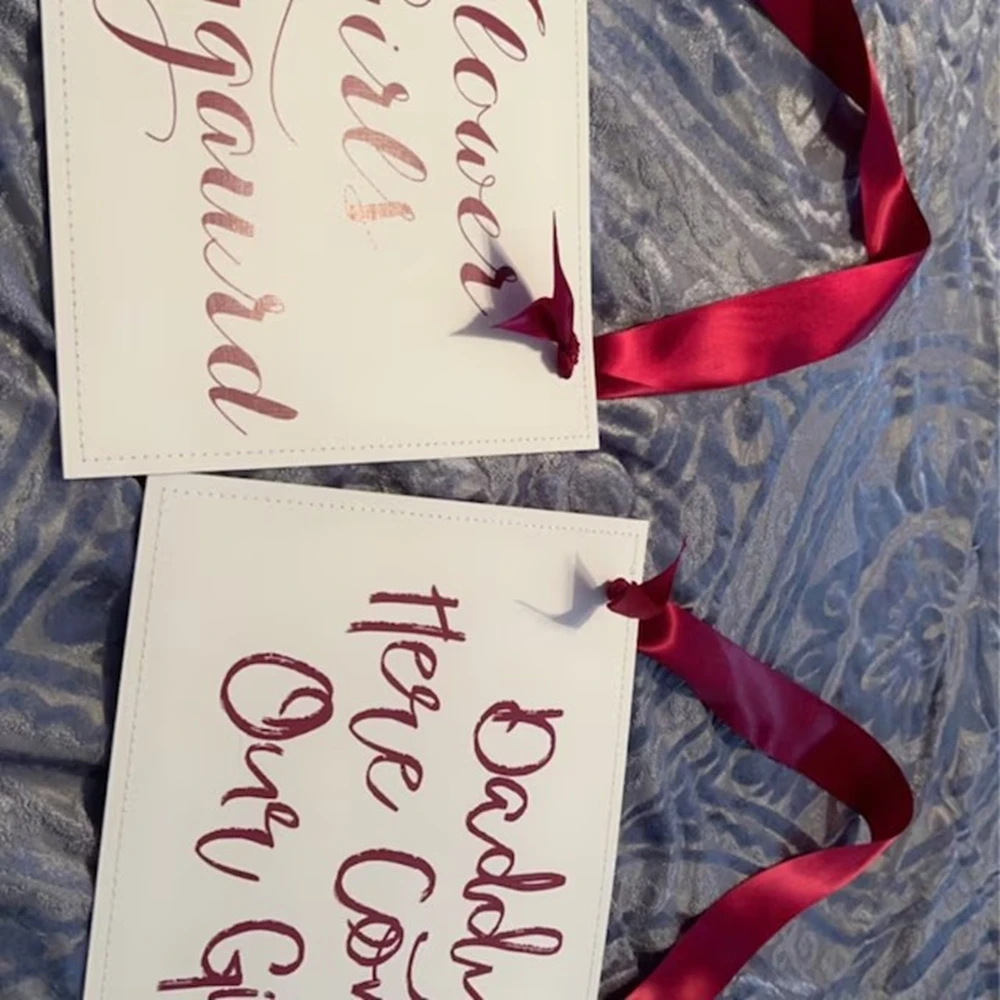 Flower
irls
gaurd
Daddy
Here Com
Our Gi